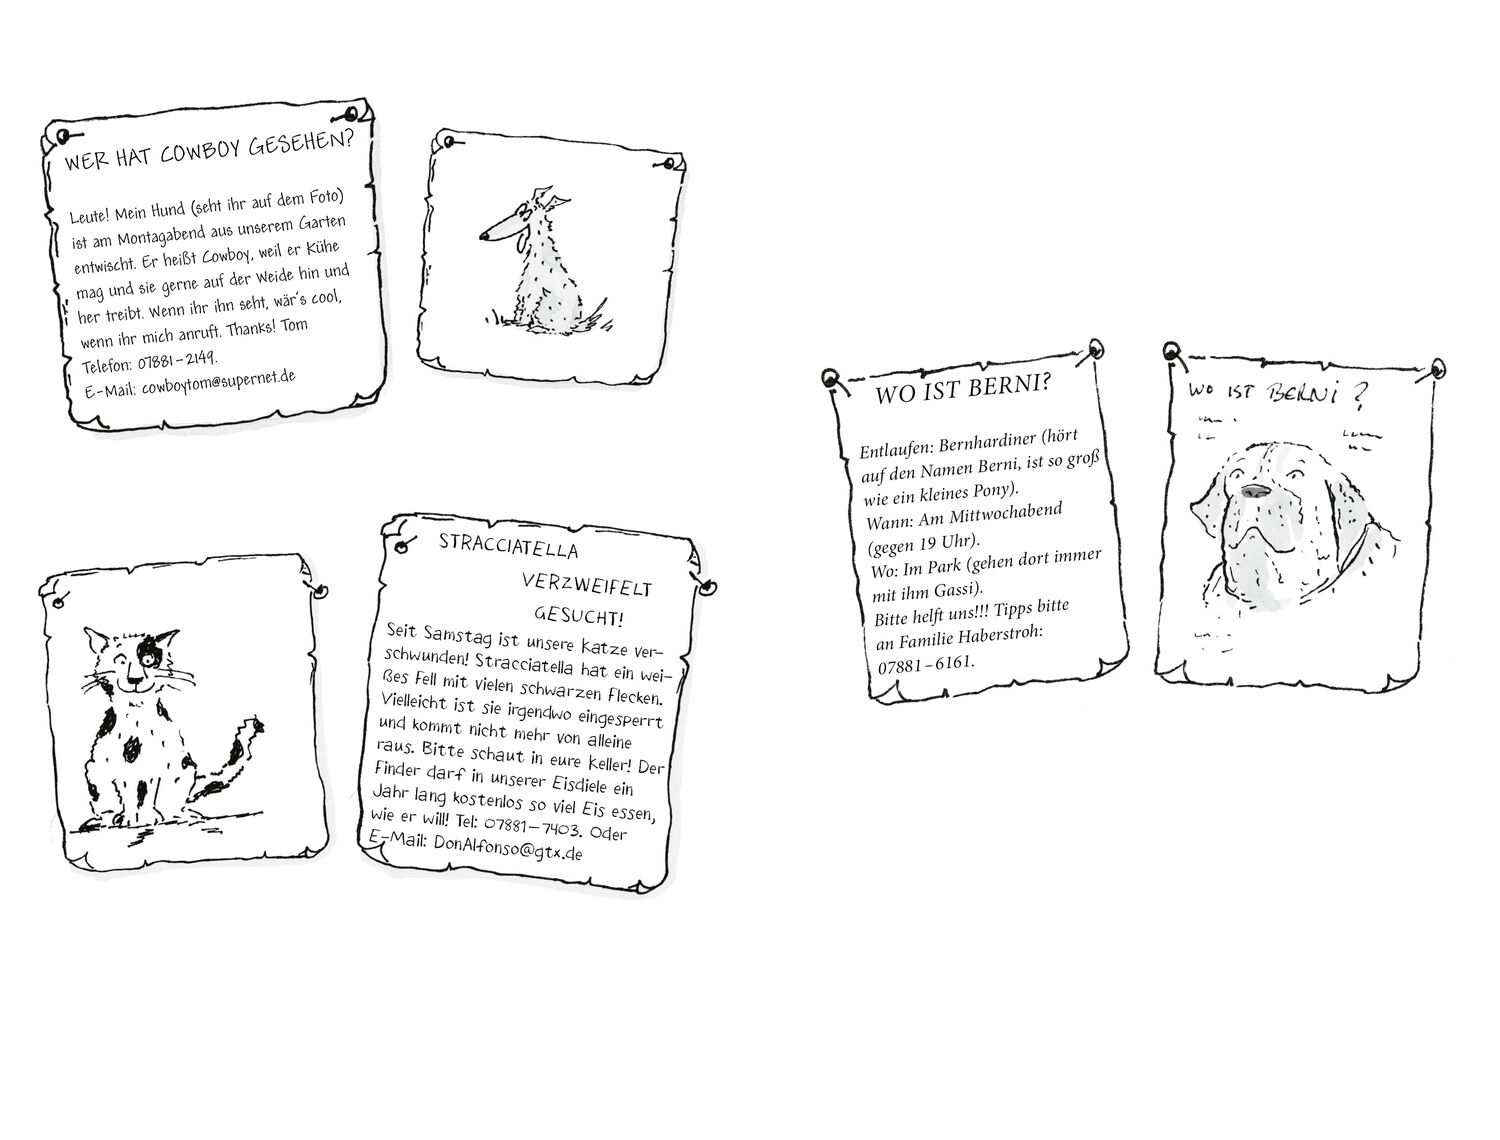 WER HAT COWBOY GESEHEN?
Leute! Mein Hund (seht ihr auf dem Foto)
ist am Montagabend aus unserem Garten
entwischt. Er heißt Cowboy, weil er Kühe
mag und sie gerne auf der Weide hin und
her treibt. Wenn ihr ihn seht, wär's cool,
wenn ihr mich anruft. Thanks! Tom
Telefon: 07881–2149.
E-Mail: cowboytom@supernet.de
STRACCIATELLA
VERZWEIFELT
GESUCHT!
Seit Samstag ist unsere Katze ver-
schwunden! Stracciatella hat ein wei-
ßes Fell mit vielen schwarzen Flecken.
Vielleicht ist sie irgendwo eingesperrt
und kommt nicht mehr von alleine
raus. Bitte schaut in eure Keller! Der
Finder darf in unserer Eisdiele ein
Jahr lang kostenlos so viel Eis essen,
wie er will! Tel: 07881–7403. Oder
E-Mail: DonAlfonso@gtx.de
WO IST BERNI?
Entlaufen: Bernhardiner (hört
auf den Namen Berni, ist so groß
wie ein kleines Pony).
Wann: Am Mittwochabend
(gegen 19 Uhr).
Wo: Im Park (gehen dort immer
mit ihm Gassi).
Bitte helft uns!!! Tipps bitte
an Familie Haberstroh:
07881–6161.
WO IST BERNI?